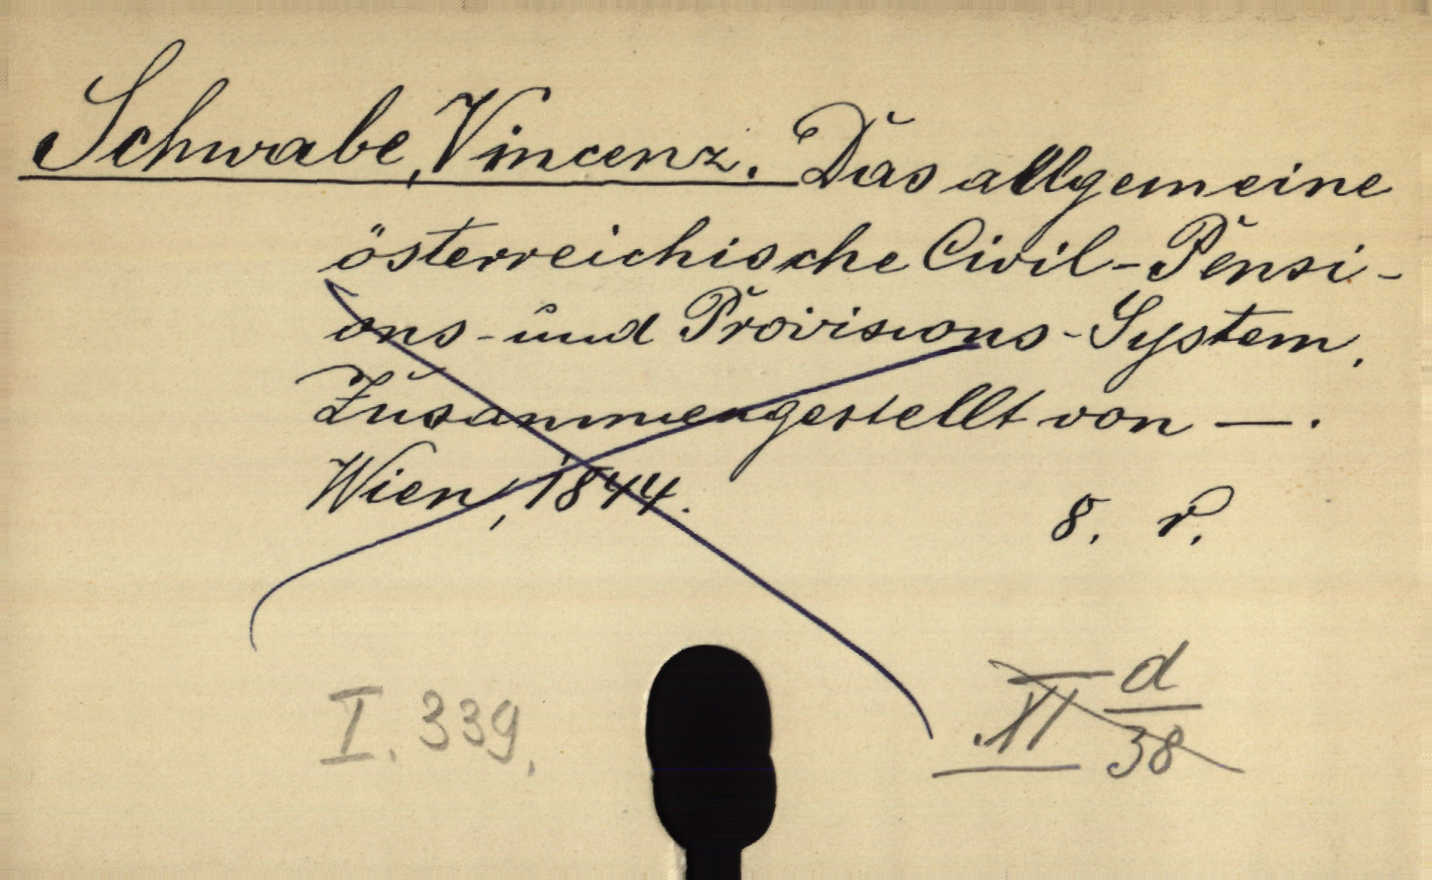 Schwabe, Vincenz. Das allgemeine
österreichische Civil-Pensi-
ons- und Provisions-System.
Zusammengestellt von —.
Wien, 1844. 8. r.
I. 339.
XI d/38